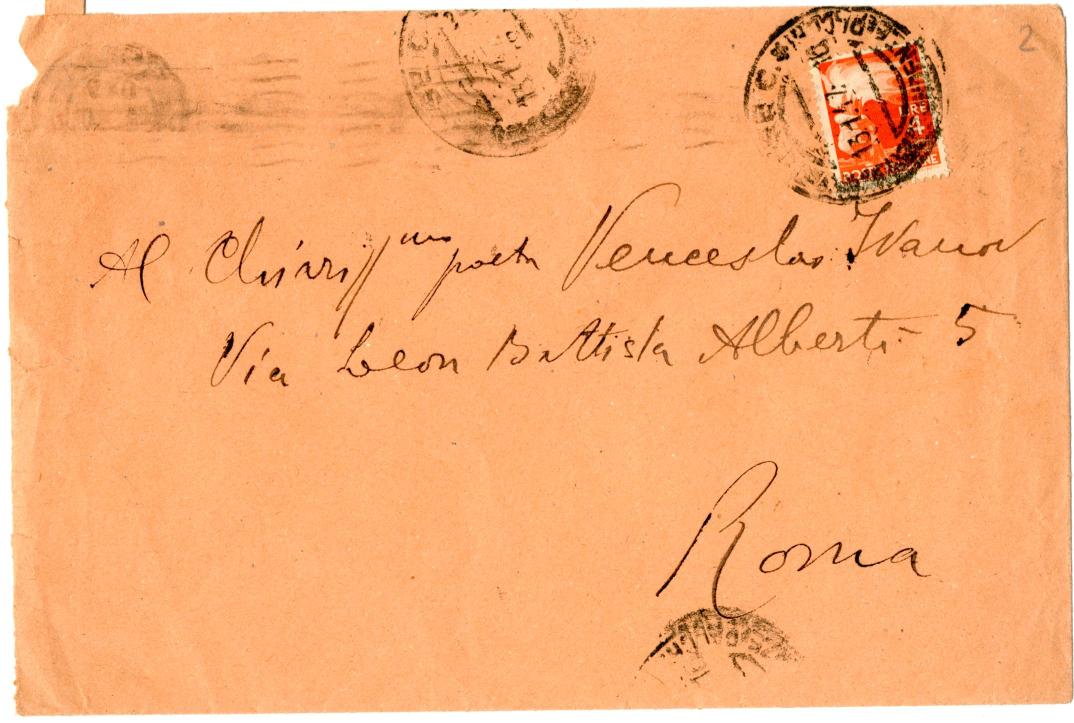 2
13.1.47
LIRE
4
Al Chiariss^mo poeta Venceslao Ivanov
Via Leon Battista Alberti 5
Roma